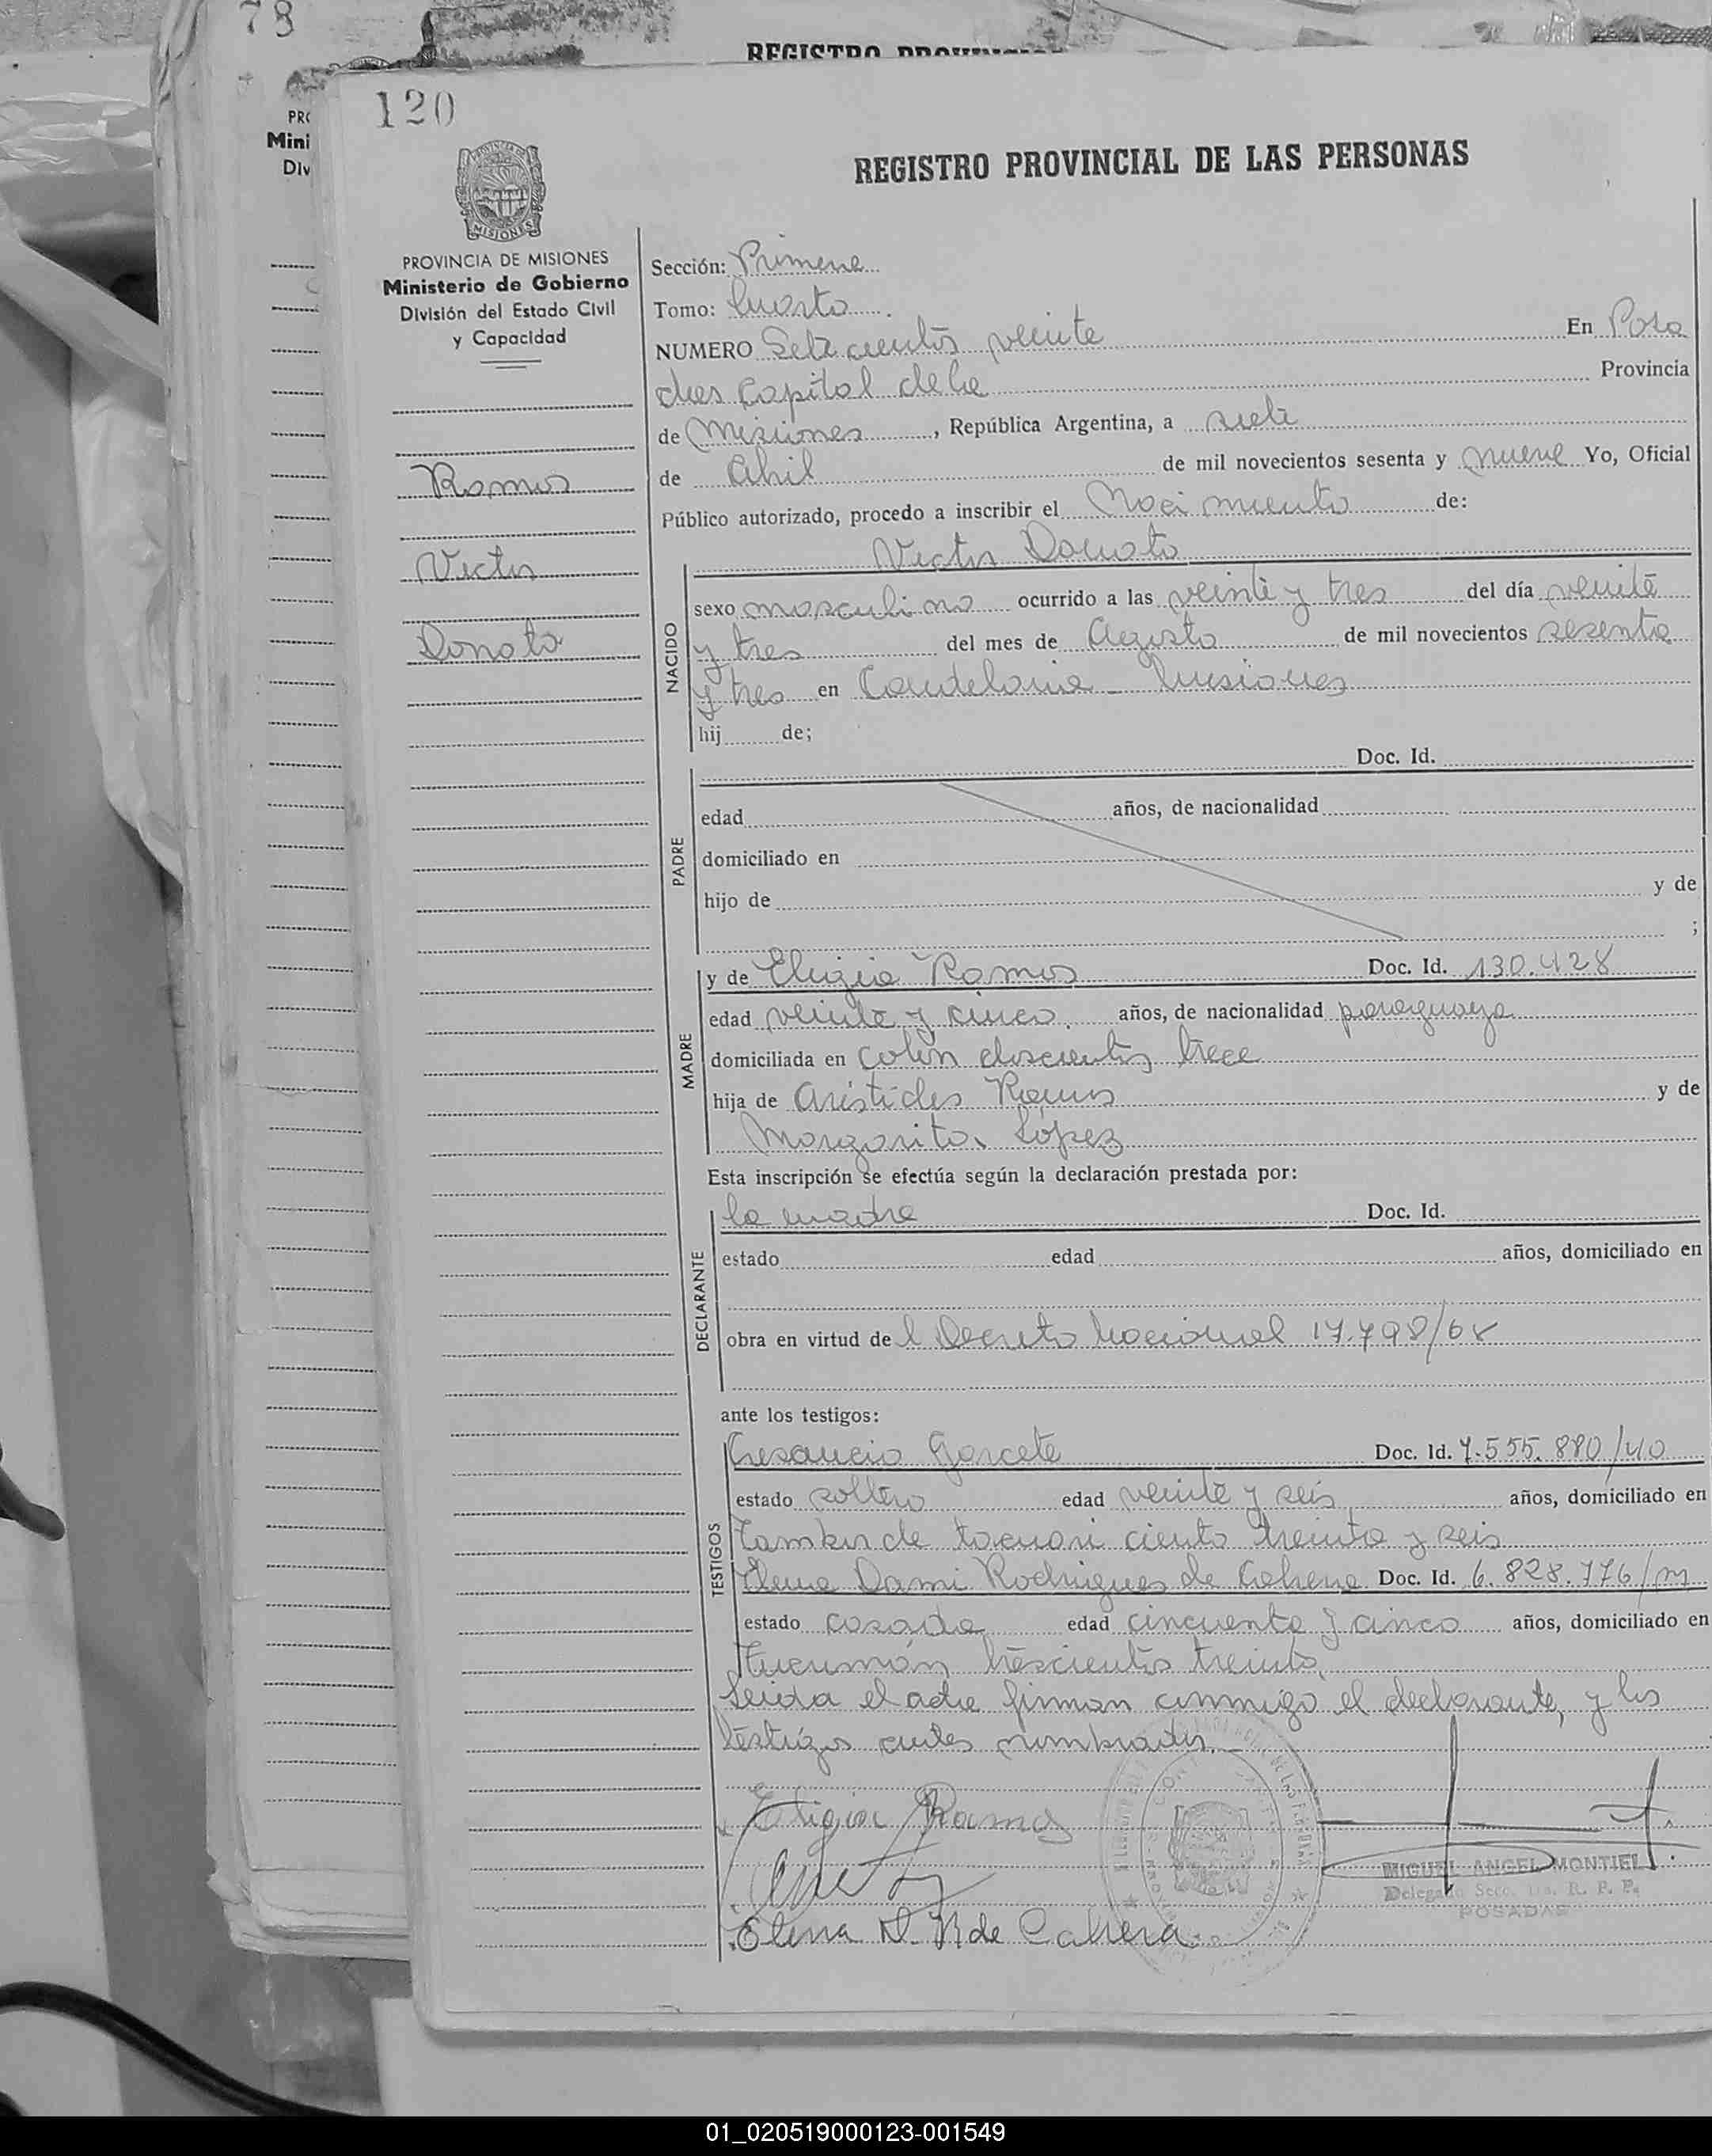 78
REGISTRO
120
PRO
Mini
Div
REGISTRO PROVINCIAL DE LAS PERSONAS
PROVINCIA DE MISIONES
MISIONES
PROVINCIA DE MISIONES
Ministerio de Gobierno
División del Estado Civil
y Capacidad
Ramos
Victor
Donato
Sección: Primera
Tomo: Cuarto
NUMERO Setecientos veinte En Posa
das Capital de la Provincia
de Misiones, República Argentina, a siete
de Abril de mil novecientos sesenta y nueve Yo, Oficial
Público autorizado, procedo a inscribir el Nacimiento de:
Victor Donato
NACIDO
sexo masculino ocurrido a las veinte y tres del día veinte
y tres del mes de Agosto de mil novecientos sesenta
y tres en Candelaria - Misiones
hij de;
PADRE
Doc. Id.
edad años, de nacionalidad
domiciliado en
hijo de y de
;
MADRE
y de Eligia Ramos Doc. Id. 130.428
edad veinte y cinco. años, de nacionalidad paraguaya
domiciliada en Colón doscientos trece
hija de Arístides Ramos y de
Margarita López
Esta inscripción se efectúa según la declaración prestada por:
DECLARANTE
la madre Doc. Id.
estado edad años, domiciliado en
obra en virtud de l Decreto Nacional 17.798/68
ante los testigos:
TESTIGOS
Cresencio Garcete Doc. Id. 7.555.880/40
estado soltero edad veinte y seis años, domiciliado en
Tambor de tacuari ciento treinta y seis
Elena Dami Rodrigues de Cabrera Doc. Id. 6.828.776/m
estado casada edad cincuenta y cinco años, domiciliado en
Tucumán trescientos treinta.
Leida el acta firman conmigo el declarante, y los
testigos antes nombrados.-
Eligia Ramos
Elena D. R de Cabrera.
MIGUEL ANGEL MONTIEL
Delegado Secc. 1ra. R. P. P.
POSADAS
01_020519000123-001549